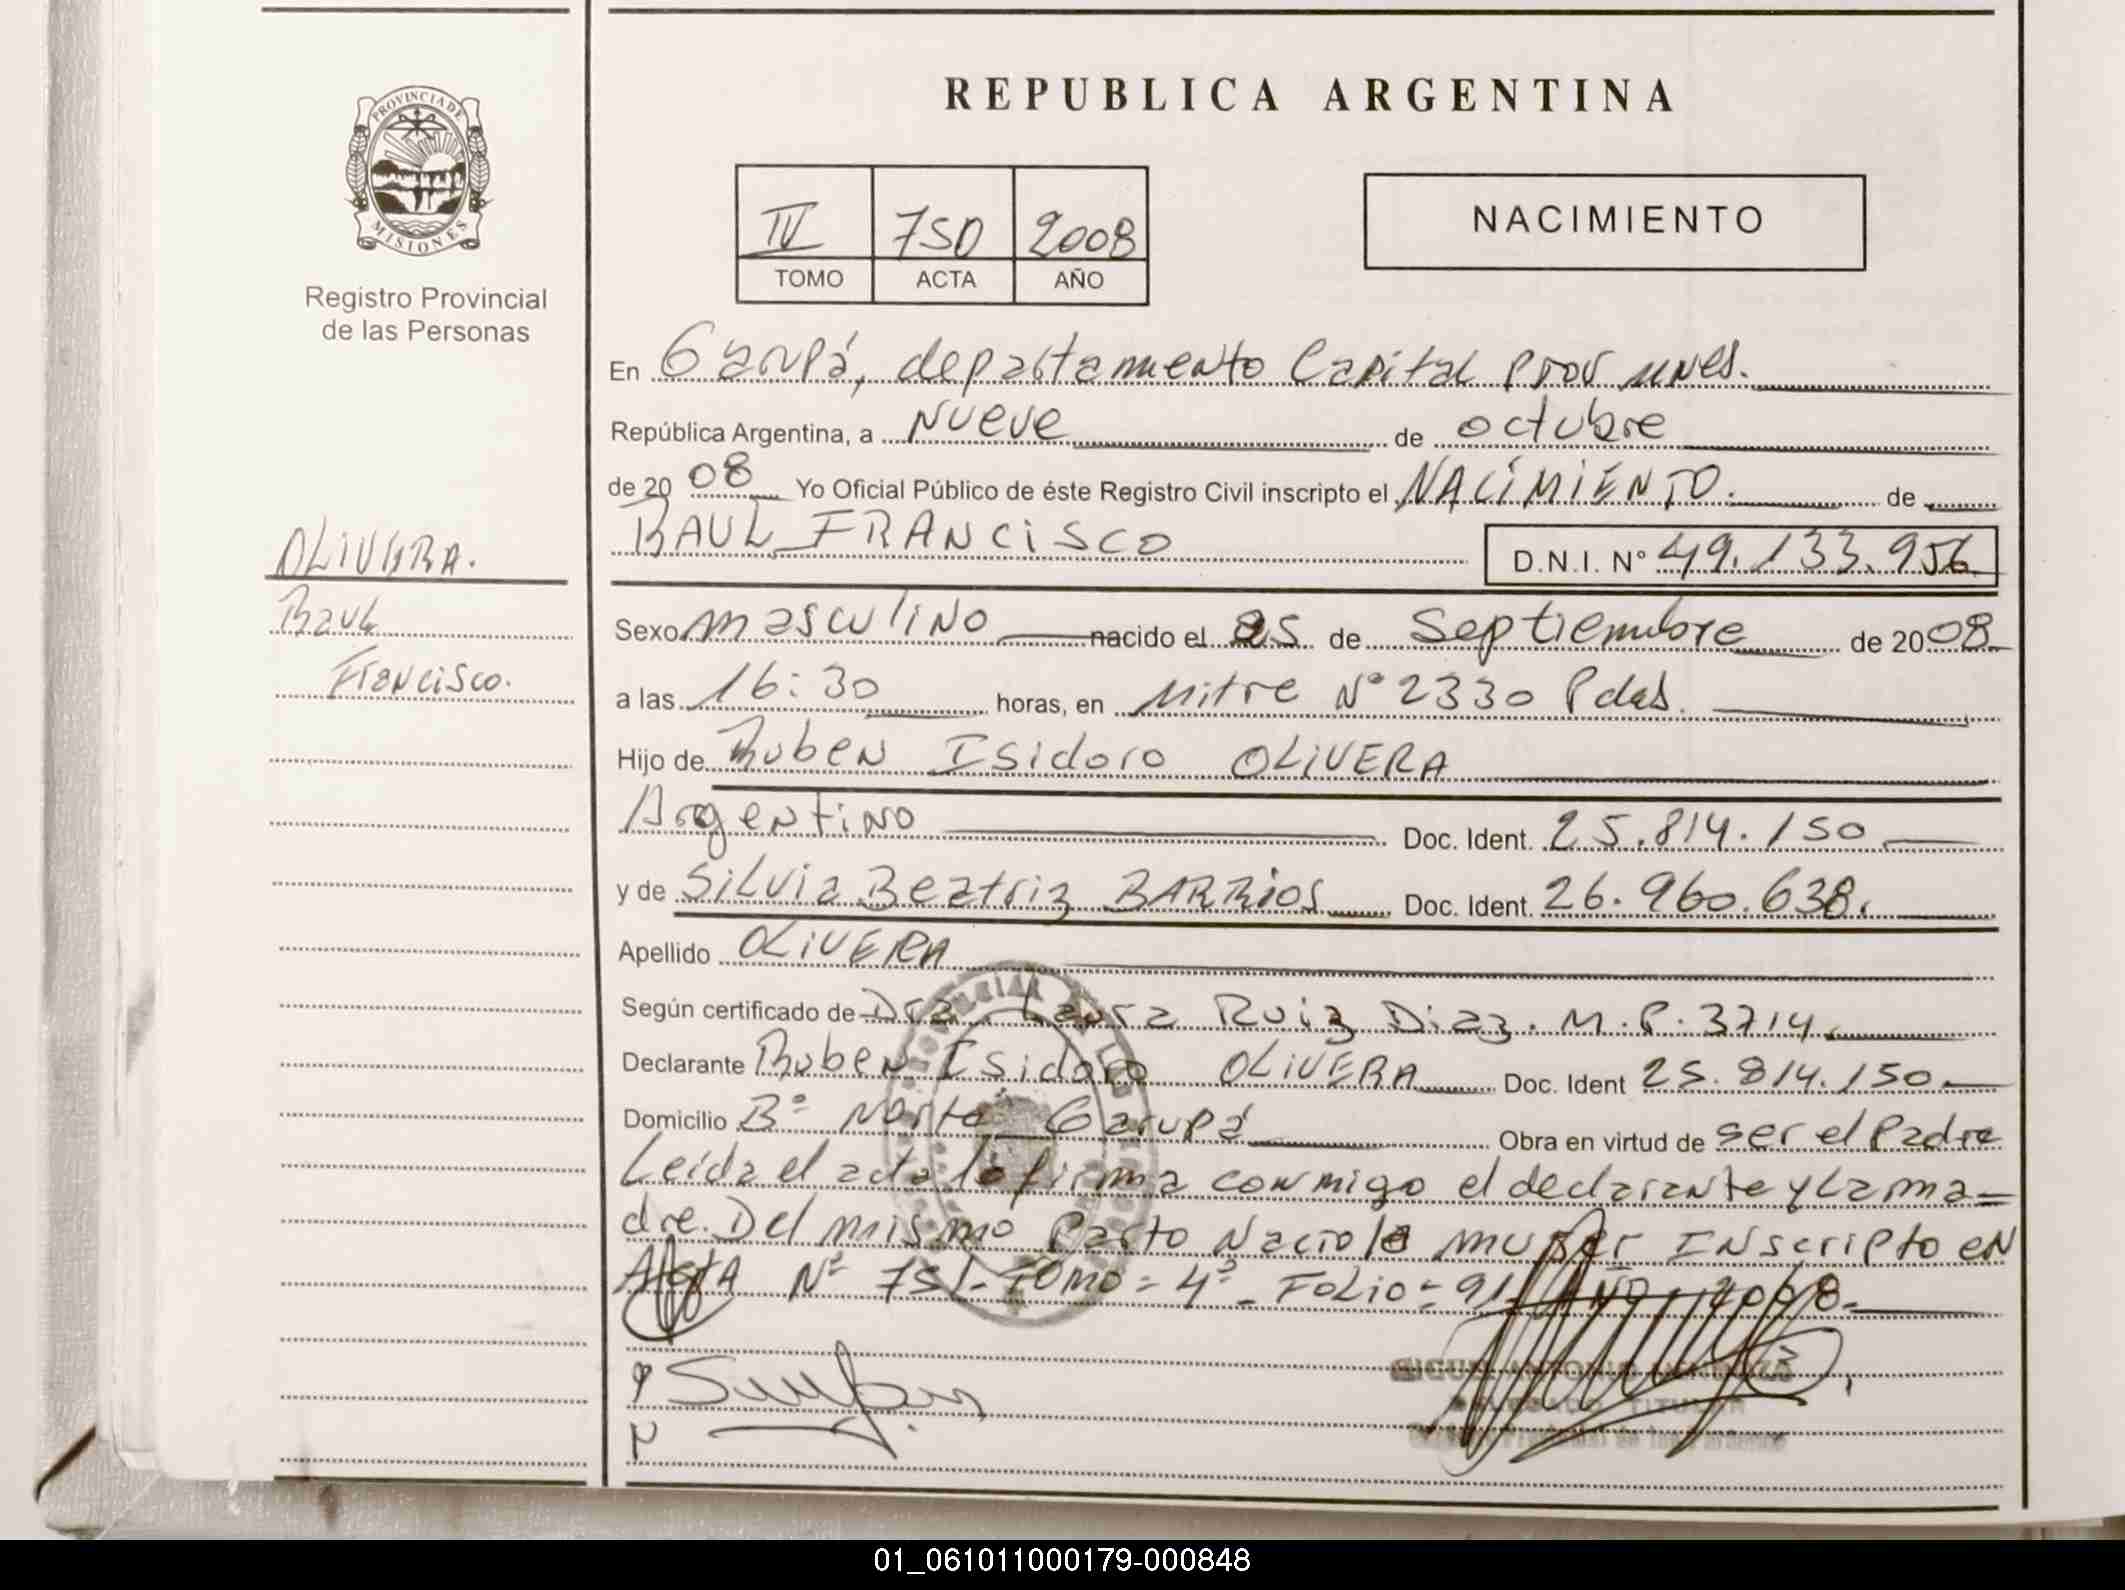 REPUBLICA ARGENTINA
PROVINCIA DE
MISIONES
Registro Provincial
de las Personas
IV 750 2008
TOMO ACTA AÑO
NACIMIENTO
En Garupá, departamento Capital Prov mnes.
República Argentina, a nueve de octubre
de 20 08 Yo Oficial Público de éste Registro Civil inscripto el NACIMIENTO. de
RAUL FRANCISCO D.N.I. Nº 49.133.956
OLIVERA.
Raul
Francisco.
Sexo masculino nacido el 25 de Septiembre de 2008
a las 16:30 horas, en Mitre Nº 2330 Pdas.
Hijo de Ruben Isidoro OLIVERA
Argentino Doc. Ident. 25.814.150
y de Silvia Beatriz BARRIOS Doc. Ident. 26.960.638.
Apellido OLIVERA
Según certificado de Dra Laura Ruiz Diaz. M.P. 3714.
Declarante Ruben Isidoro OLIVERA Doc. Ident 25.814.150
Domicilio Bº Norte Garupá Obra en virtud de ser el Padre
Leída el acta lo firma conmigo el declarante y la ma=
dre. Del mismo Parto Nacio la mujer Inscripto en
Acta Nº 751- Tomo= 4º- Folio= 91- AÑO 2008-
01_061011000179-000848